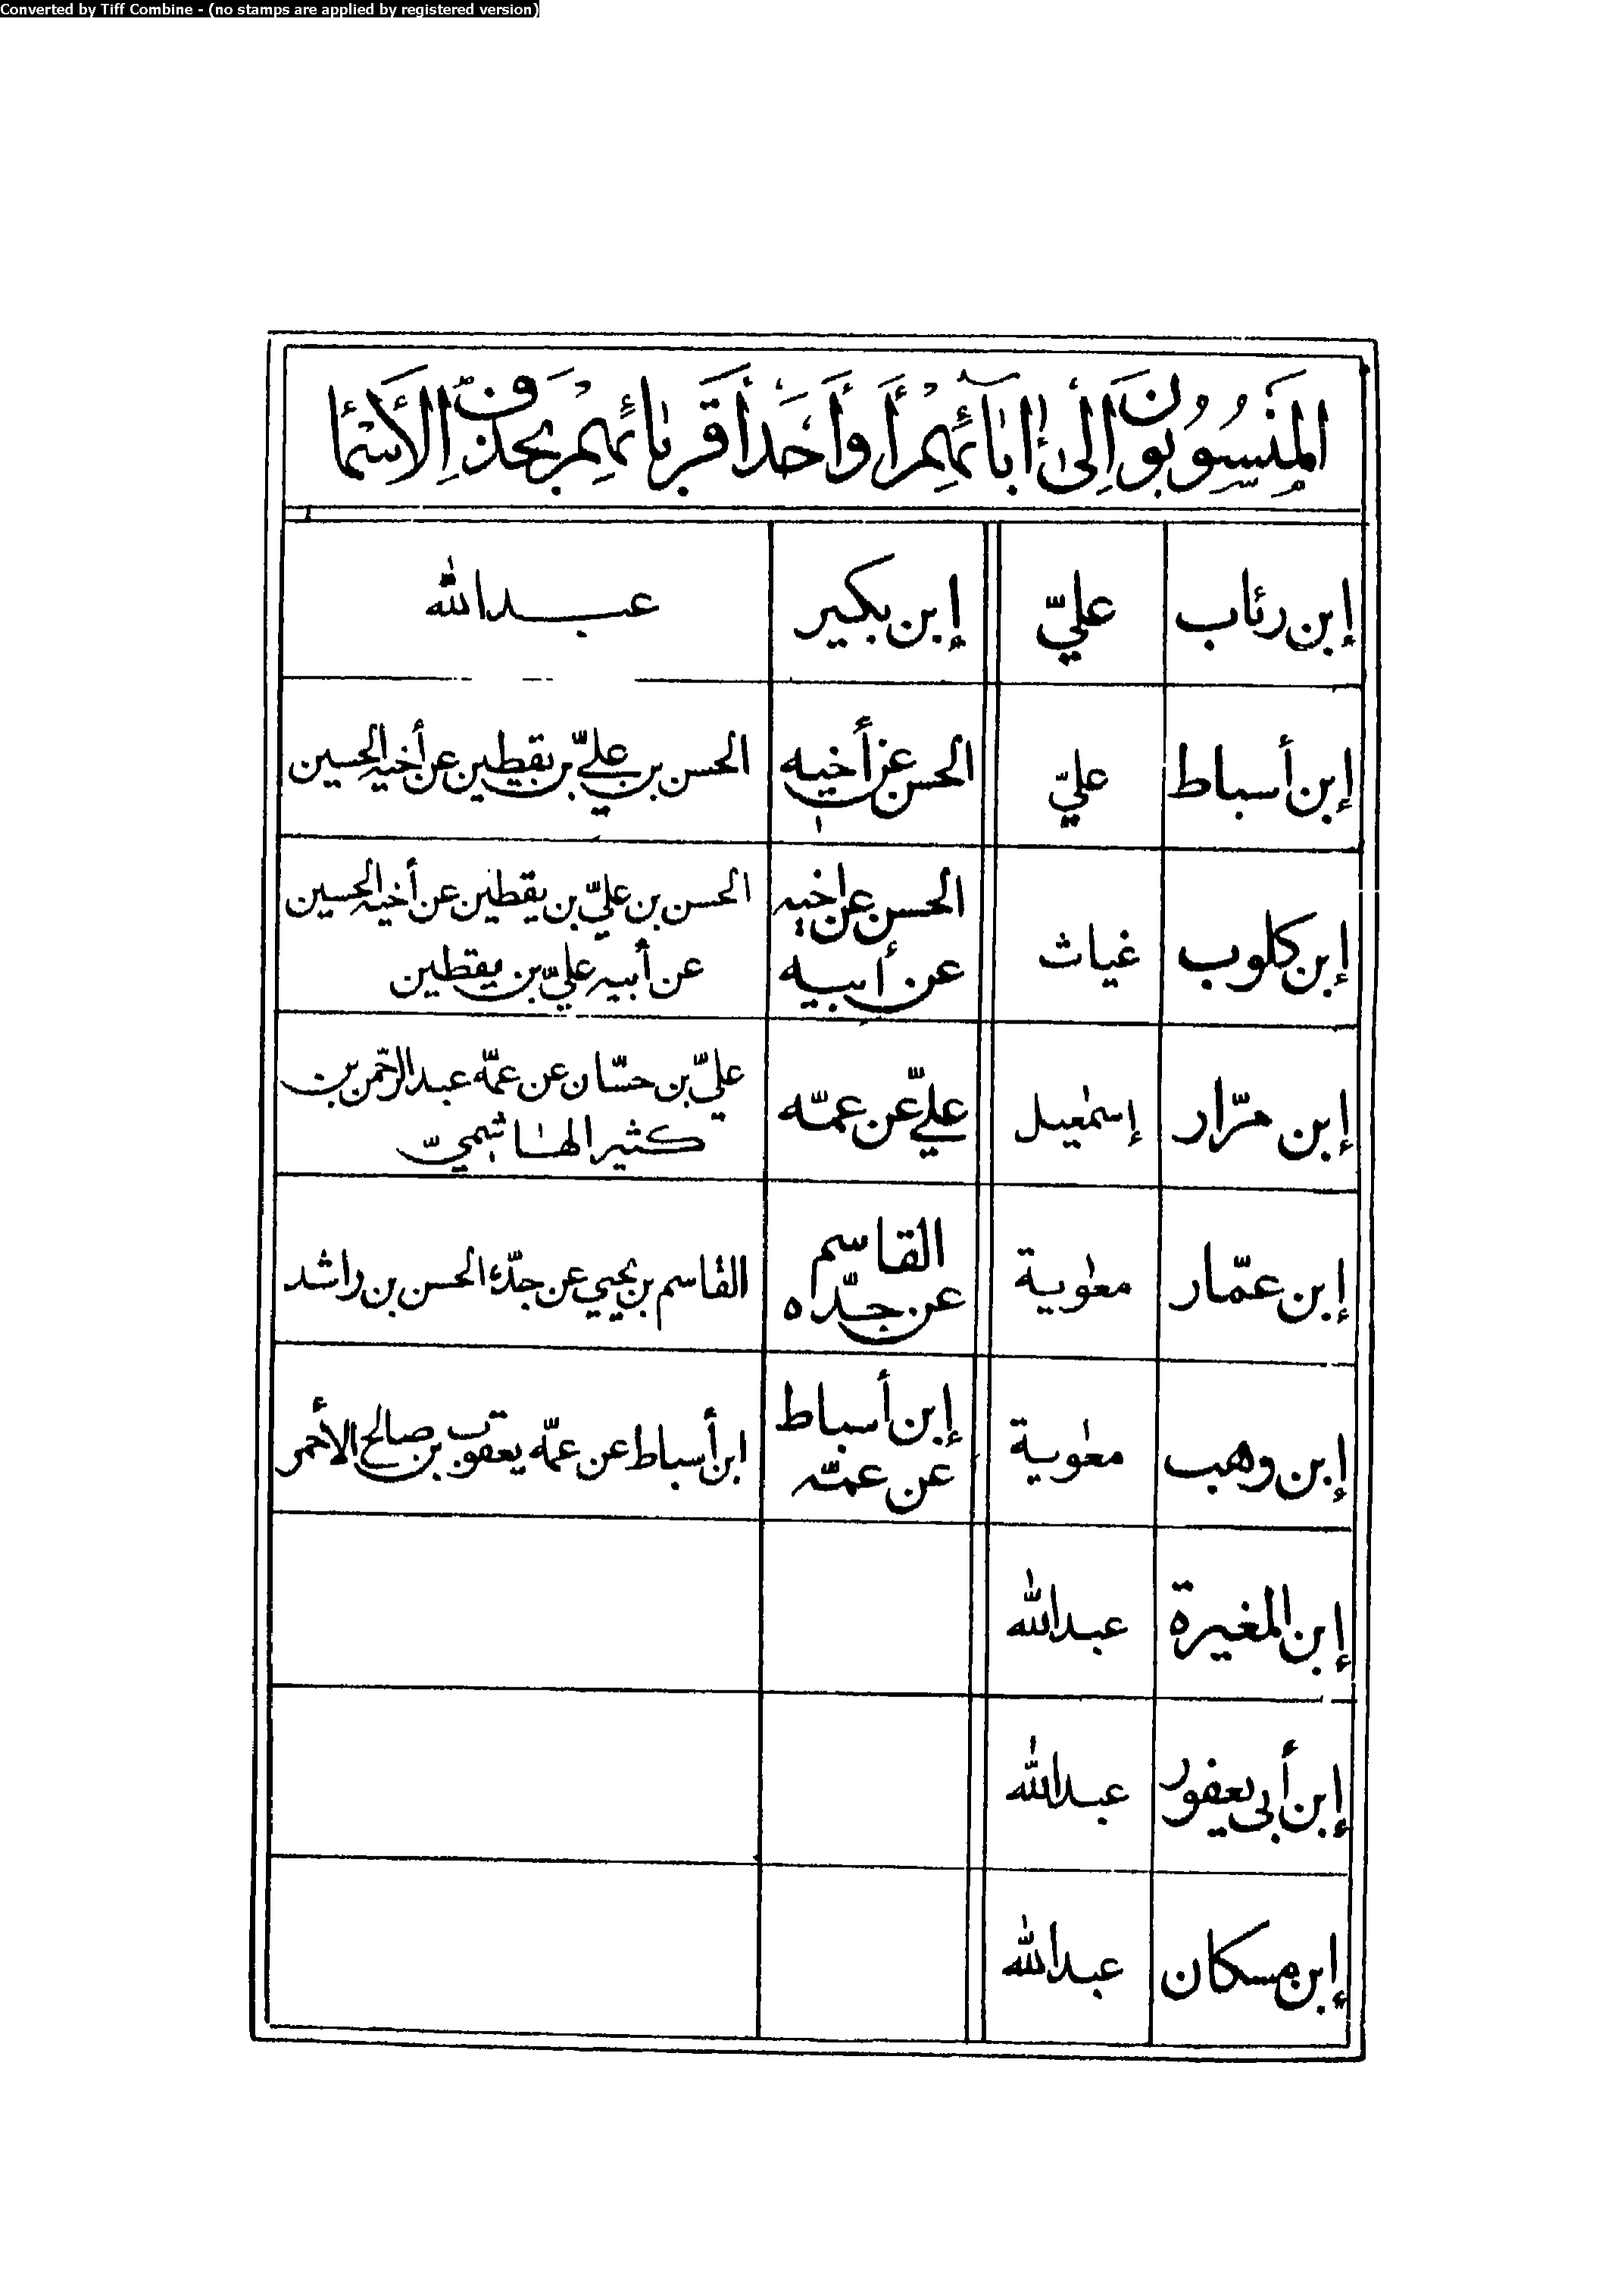 Converted by Tiff Combine - (no stamps are applied by registered version)
المَنسُوبُونَ إِلىٰ اٰبَائِهِمْ أَوْ أَحَدِ أَقرِبَائِهِمْ بِحَذفِ الأَسْمَاءِ
إبن رئاب
عليّ
إبن بكير
عبدالله
إبن أسباط
عليّ
الحسن عن أخيه
الحسن بن عليّ بن يقطين عن أخيه الحسين
إبن كلوب
غياث
الحسن عن اخيه
عن أبيه
الحسن بن عليّ بن يقطين عن أخيه الحسين
عن أبيه عليّ بن يقطين
إبن مرّار
إسمٰعيل
عليّ عن عمّه
عليّ بن حسّان عن عمّه عبدالرّحمن بن
كثير الهاشميّ
إبن عمّار
معٰوية
القاسم
عن جدّه
القاسم بن يحيي عن جدّه الحسن بن راشد
إبن وهب
معٰوية
إبن أسباط
عن عمّه
ابن أسباط عن عمّه يعقوب بن صالح الأحمر
إبن المغيرة
عبدالله
إبن أبى يعفور
عبدالله
إبن مسكان
عبدالله